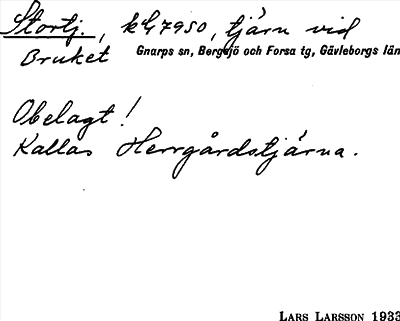 Stortj., kh 7950, tjärn vid
Bruket Gnarps sn, Bergsjö och Forsa tg, Gävleborgs län
Obelagt!
Kallas Herrgårdstjärna.
LARS LARSSON 1933